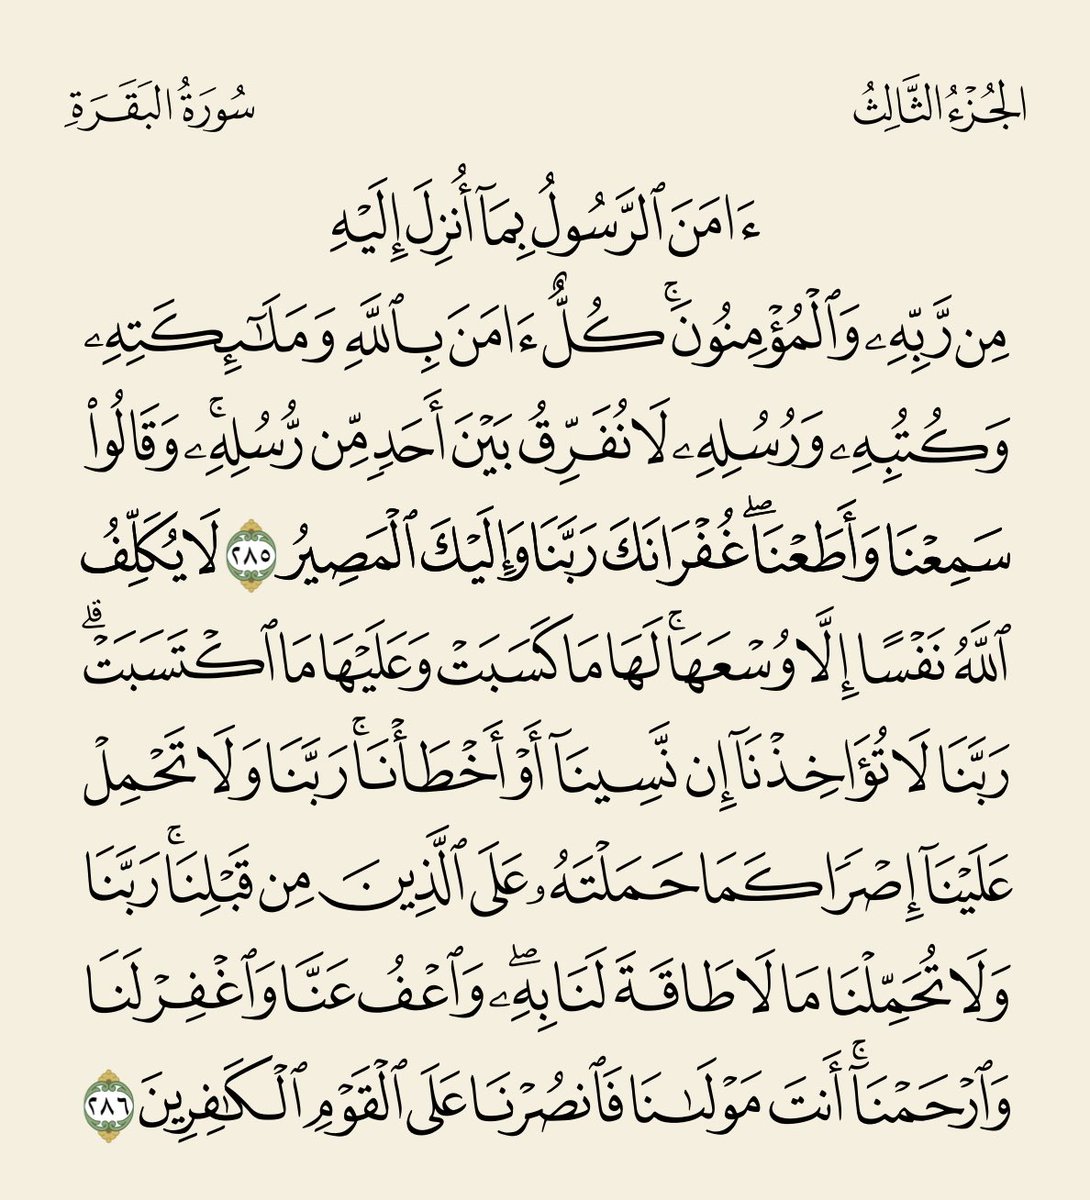 الجُزْءُ الثَّالِثُ
سُورَةُ البَقَرَةِ
ءَامَنَ ٱلرَّسُولُ بِمَآ أُنزِلَ إِلَيْهِ
مِن رَّبِّهِۦ وَٱلْمُؤْمِنُونَۚ كُلٌّ ءَامَنَ بِٱللَّهِ وَمَلَٰٓئِكَتِهِۦ
وَكُتُبِهِۦ وَرُسُلِهِۦ لَا نُفَرِّقُ بَيْنَ أَحَدٍ مِّن رُّسُلِهِۦۚ وَقَالُوا۟
سَمِعْنَا وَأَطَعْنَاۖ غُفْرَانَكَ رَبَّنَا وَإِلَيْكَ ٱلْمَصِيرُ ٢٨٥ لَا يُكَلِّفُ
ٱللَّهُ نَفْسًا إِلَّا وُسْعَهَاۚ لَهَا مَا كَسَبَتْ وَعَلَيْهَا مَا ٱكْتَسَبَتْۗ
رَبَّنَا لَا تُؤَاخِذْنَآ إِن نَّسِينَآ أَوْ أَخْطَأْنَاۚ رَبَّنَا وَلَا تَحْمِلْ
عَلَيْنَآ إِصْرًا كَمَا حَمَلْتَهُۥ عَلَى ٱلَّذِينَ مِن قَبْلِنَاۚ رَبَّنَا
وَلَا تُحَمِّلْنَا مَا لَا طَاقَةَ لَنَا بِهِۦۖ وَٱعْفُ عَنَّا وَٱغْفِرْ لَنَا
وَٱرْحَمْنَآۚ أَنتَ مَوْلَىٰنَا فَٱنصُرْنَا عَلَى ٱلْقَوْمِ ٱلْكَٰفِرِينَ ٢٨٦